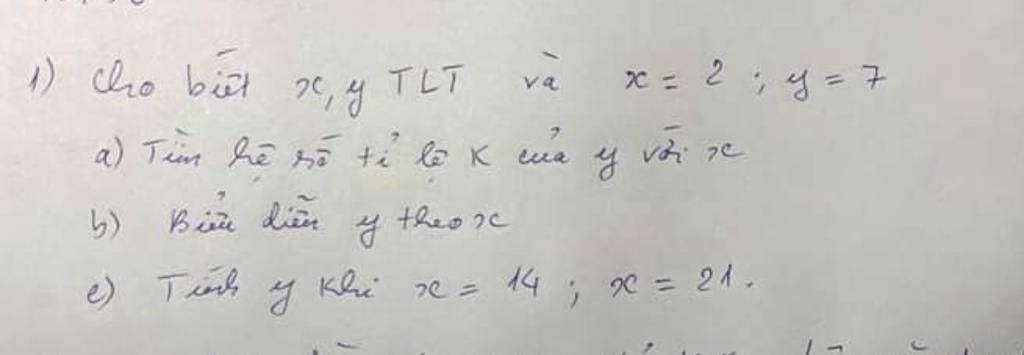 1) Cho biết x, y TLT và x = 2 ; y = 7
a) Tìm hệ số tỉ lệ K của y với x
b) Biểu diễn y theo x
c) Tính y khi x = 14 ; x = 21.